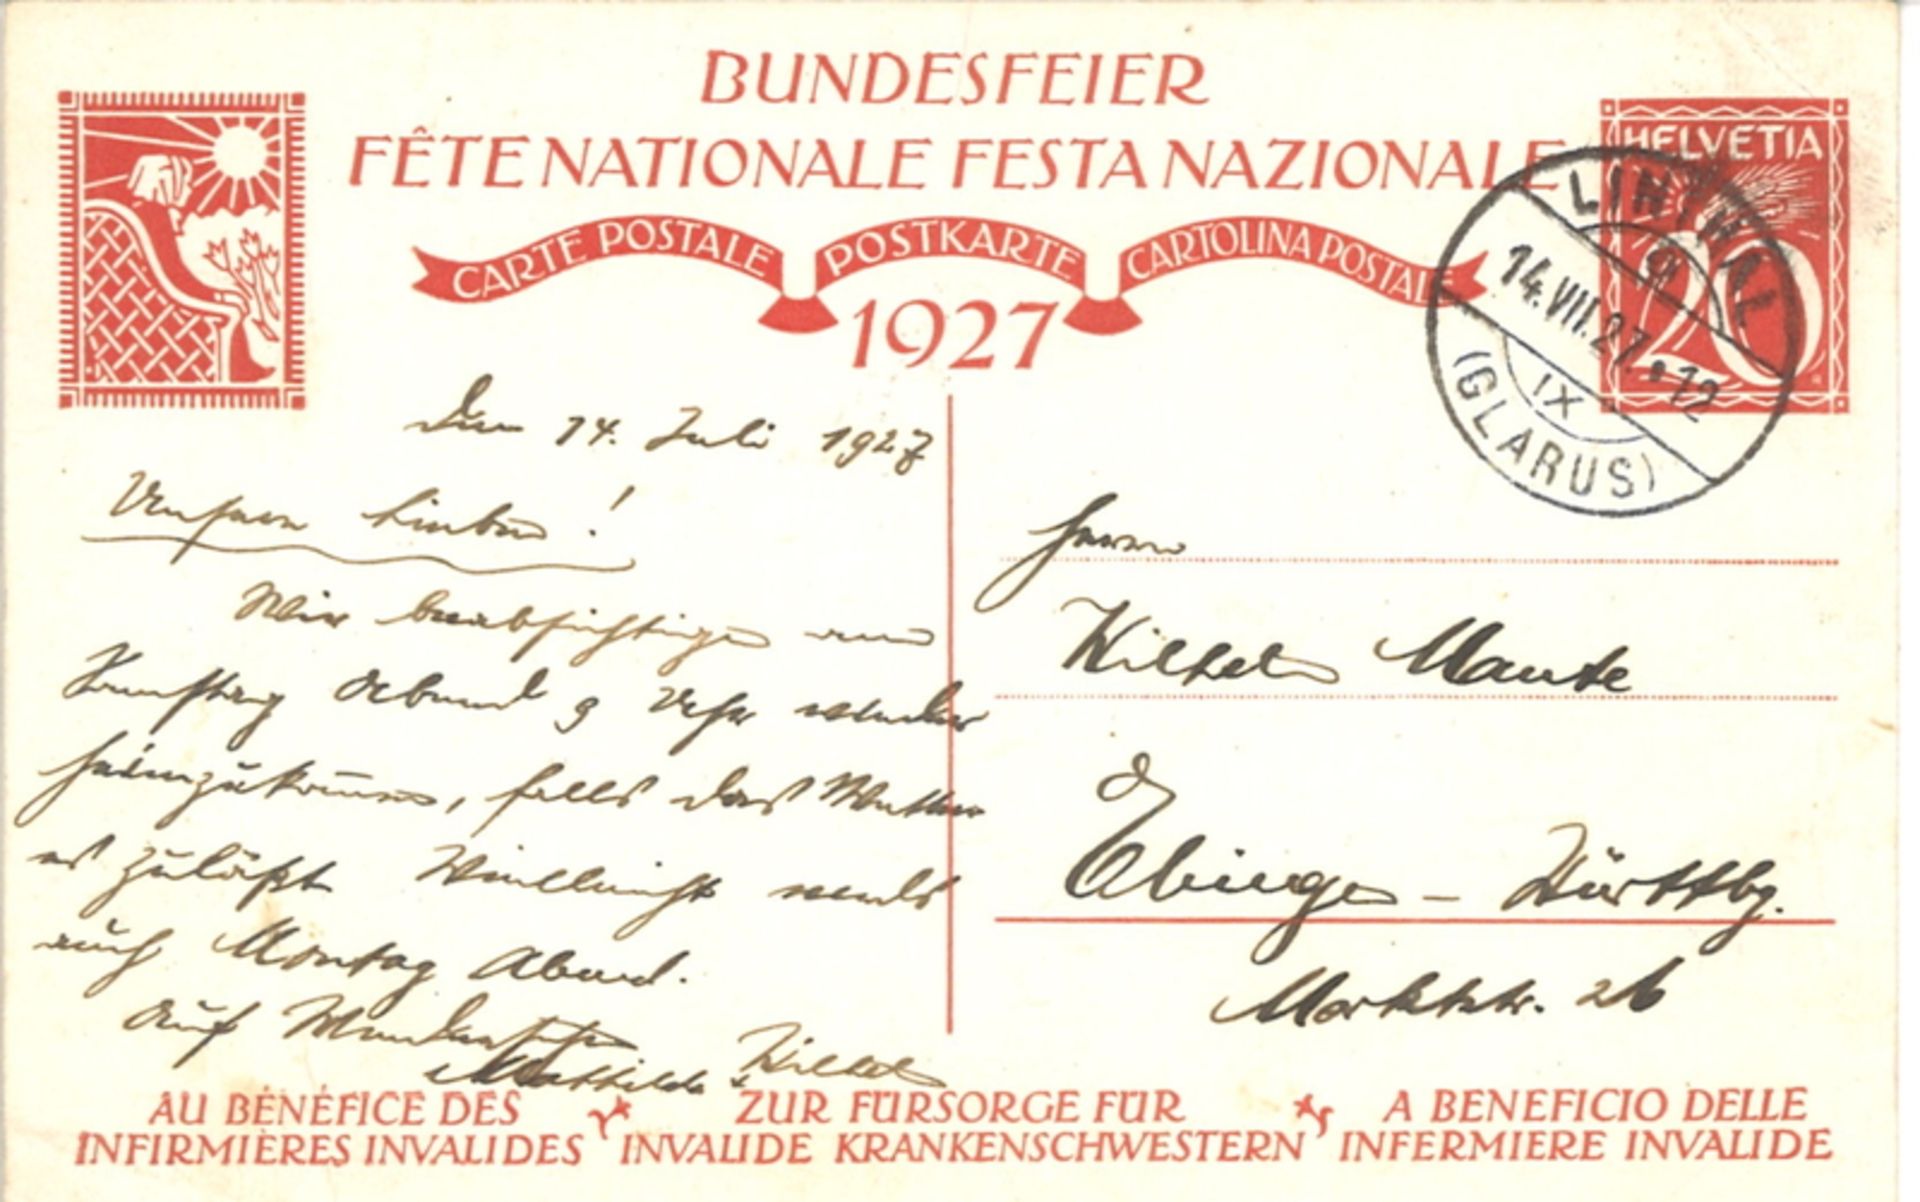 BUNDESFEIER
FÊTE NATIONALE FESTA NAZIONALE
CARTE POSTALE POSTKARTE CARTOLINA POSTALE
1927
HELVETIA
20
LINTHAL
14.VII.27. 12
IX
(GLARUS)
Den 14. Juli 1927
Unsere Lieben!
Wir beabsichtigen am
Samstag Abend 9 Uhr wieder
heimzukommen, falls das Wetter
es zuläßt. Vielleicht
auch Montag Abend.
Auf Wiedersehen
Mathilde + Wilhelm
Herrn
Wilhelm Maute
Ebingen - Württbg.
Marktstr. 26
AU BÉNÉFICE DES
INFIRMIÈRES INVALIDES
ZUR FÜRSORGE FÜR
INVALIDE KRANKENSCHWESTERN
A BENEFICIO DELLE
INFERMIERE INVALIDE